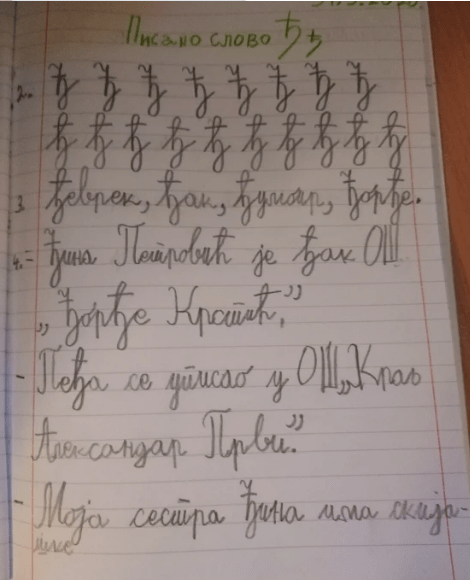 Писано слово Ђ ђ
2. Ђ Ђ Ђ Ђ Ђ Ђ Ђ Ђ
ђ ђ ђ ђ ђ ђ ђ ђ ђ
3 ђеврек, ђак, ђумбир, Ђорђе.
4. - Ђина Петровић је ђак ОШ
„Ђорђе Крстић.”
- Пеђа се уписао у ОШ „Краљ
Александар Први.”
- Моја сестра Ђина има скија-
шке